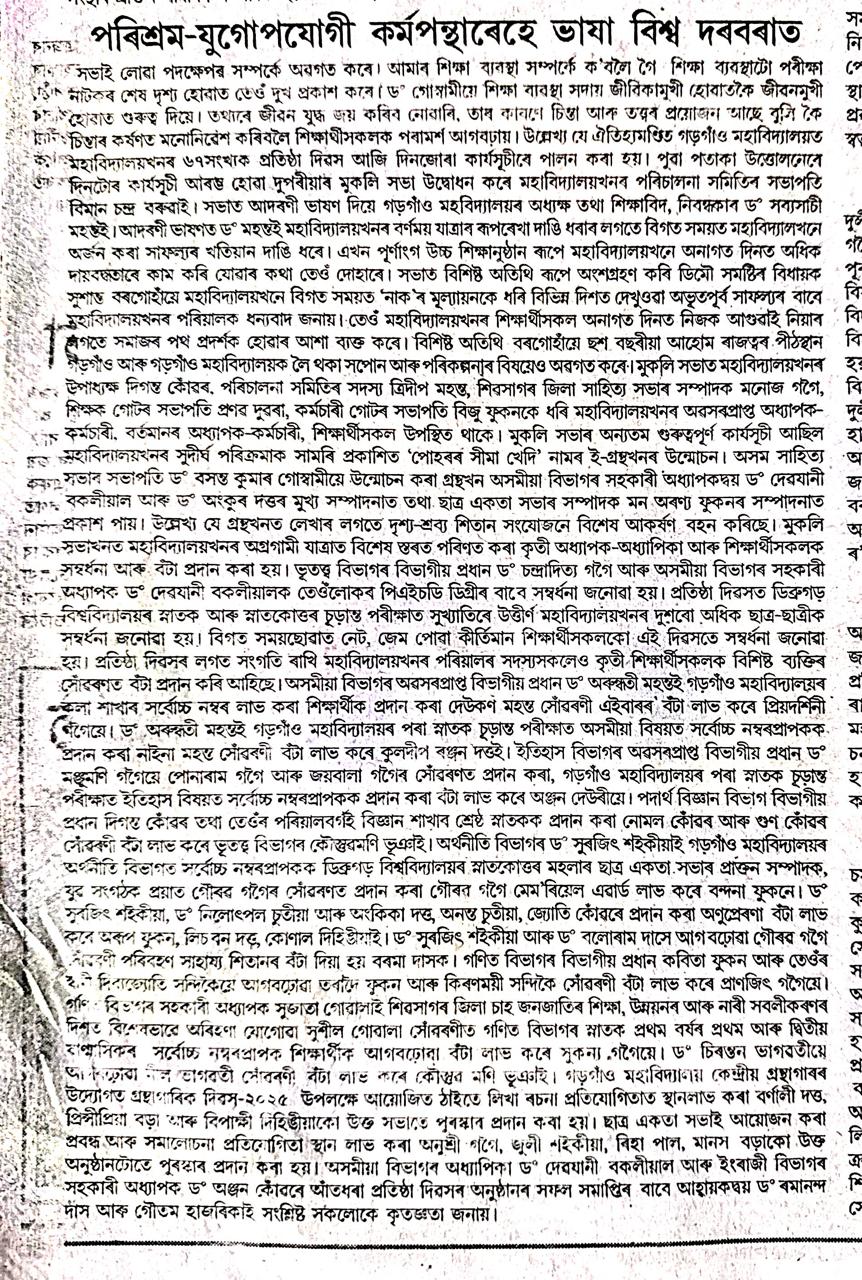 পৰিশ্ৰম-যুগোপযোগী কৰ্মপন্থাৰেহে ভাষা বিশ্ব দৰবৰাত
সভাই লোৱা পদক্ষেপৰ সম্পৰ্কে অৱগত কৰে। আমাৰ শিক্ষা ব্যৱস্থা সম্পৰ্কে ক'বলৈ গৈ শিক্ষা ব্যৱস্থাটো পৰীক্ষা
নাটকৰ শেষ দৃশ্য হোৱাত তেওঁ দুখ প্ৰকাশ কৰে। ড° গোস্বামীয়ে শিক্ষা ব্যৱস্থা সদায় জীৱিকামুখী হোৱাতকৈ জীৱনমুখী
হোৱাত গুৰুত্ব দিয়ে। তথ্যৰে জীৱন যুদ্ধ জয় কৰিব নোৱাৰি, তাৰ কাৰণে চিন্তা আৰু তত্ত্বৰ প্ৰয়োজন আছে বুলি কৈ
চিন্তাৰ কৰ্ষণত মনোনিৱেশ কৰিবলৈ শিক্ষাৰ্থীসকলক পৰামৰ্শ আগবঢ়ায়। উল্লেখ্য যে ঐতিহ্যমণ্ডিত গড়গাঁও মহাবিদ্যালয়ত
মহাবিদ্যালয়খনৰ ৬৭সংখ্যক প্ৰতিষ্ঠা দিৱস আজি দিনজোৰা কাৰ্যসূচীৰে পালন কৰা হয়। পুৱা পতাকা উত্তোলনেৰে
দিনটোৰ কাৰ্যসূচী আৰম্ভ হোৱা দুপৰীয়াৰ মুকলি সভা উদ্বোধন কৰে মহাবিদ্যালয়খনৰ পৰিচালনা সমিতিৰ সভাপতি
বিমান চন্দ্ৰ বৰুৱাই। সভাত আদৰণী ভাষণ দিয়ে গড়গাঁও মহবিদ্যালয়ৰ অধ্যক্ষ তথা শিক্ষাবিদ, নিবন্ধকাৰ ড° সব্যসাচী
মহন্তই। আদৰণী ভাষণত ড° মহন্তই মহাবিদ্যালয়খনৰ বৰ্ণময় যাত্ৰাৰ ৰূপৰেখা দাঙি ধৰাৰ লগতে বিগত সময়ত মহাবিদ্যালখনে
অৰ্জন কৰা সাফল্যৰ খতিয়ান দাঙি ধৰে। এখন পূৰ্ণাংগ উচ্চ শিক্ষানুষ্ঠান ৰূপে মহাবিদ্যালয়খনে অনাগত দিনত অধিক
দায়বদ্ধতাৰে কাম কৰি যোৱাৰ কথা তেওঁ দোহাৰে। সভাত বিশিষ্ট অতিথি ৰূপে অংশগ্ৰহণ কৰি ডিমৌ সমষ্টিৰ বিধায়ক
সুশান্ত বৰগোহাঁয়ে মহাবিদ্যালয়খনে বিগত সময়ত 'নাক'ৰ মূল্যায়নকে ধৰি বিভিন্ন দিশত দেখুওৱা অভূতপূৰ্ব সাফল্যৰ বাবে
মহাবিদ্যালয়খনৰ পৰিয়ালক ধন্যবাদ জনায়। তেওঁ মহাবিদ্যালয়খনৰ শিক্ষাৰ্থীসকল অনাগত দিনত নিজক আগুৱাই নিয়াৰ
লগতে সমাজৰ পথ প্ৰদৰ্শক হোৱাৰ আশা ব্যক্ত কৰে। বিশিষ্ট অতিথি বৰগোহাঁয়ে ছশ বছৰীয়া আহোম ৰাজত্বৰ পীঠস্থান
গড়গাঁও আৰু গড়গাঁও মহাবিদ্যালয়ক লৈ থকা সপোন আৰু পৰিকল্পনাৰ বিষয়েও অৱগত কৰে। মুকলি সভাত মহাবিদ্যালয়খনৰ
উপাধ্যক্ষ দিগন্ত কোঁৱৰ, পৰিচালনা সমিতিৰ সদস্য ত্ৰিদীপ মহন্ত, শিৱসাগৰ জিলা সাহিত্য সভাৰ সম্পাদক মনোজ গগৈ,
শিক্ষক গোটৰ সভাপতি প্ৰণৱ দুৱৰা, কৰ্মচাৰী গোটৰ সভাপতি বিজু ফুকনকে ধৰি মহাবিদ্যালয়খনৰ অৱসৰপ্ৰাপ্ত অধ্যাপক-
কৰ্মচাৰী, বৰ্তমানৰ অধ্যাপক-কৰ্মচাৰী, শিক্ষাৰ্থীসকল উপস্থিত থাকে। মুকলি সভাৰ অন্যতম গুৰুত্বপূৰ্ণ কাৰ্যসূচী আছিল
মহাবিদ্যালয়খনৰ সুদীৰ্ঘ পৰিক্ৰমাক সামৰি প্ৰকাশিত 'পোহৰৰ সীমা খেদি' নামৰ ই-গ্ৰন্থখনৰ উন্মোচন। অসম সাহিত্য
সভাৰ সভাপতি ড° বসন্ত কুমাৰ গোস্বামীয়ে উন্মোচন কৰা গ্ৰন্থখন অসমীয়া বিভাগৰ সহকাৰী অধ্যাপকদ্বয় ড° দেৱযানী
বকলীয়াল আৰু ড° অংকুৰ দত্তৰ মুখ্য সম্পাদনাত তথা ছাত্ৰ একতা সভাৰ সম্পাদক মন অৰণ্য ফুকনৰ সম্পাদনাত
প্ৰকাশ পায়। উল্লেখ্য যে গ্ৰন্থখনত লেখাৰ লগতে দৃশ্য-শ্ৰব্য শিতান সংযোজনে বিশেষ আকৰ্ষণ বহন কৰিছে। মুকলি
সভাখনত মহাবিদ্যালয়খনৰ অগ্ৰগামী যাত্ৰাত বিশেষ স্তৰত পৰিণত কৰা কৃতী অধ্যাপক-অধ্যাপিকা আৰু শিক্ষাৰ্থীসকলক
সম্বৰ্ধনা আৰু বঁটা প্ৰদান কৰা হয়। ভূতত্ত্ব বিভাগৰ বিভাগীয় প্ৰধান ড° চন্দ্ৰাদিত্য গগৈ আৰু অসমীয়া বিভাগৰ সহকাৰী
অধ্যাপক ড° দেৱযানী বকলীয়ালক তেওঁলোকৰ পিএইচডি ডিগ্ৰীৰ বাবে সম্বৰ্ধনা জনোৱা হয়। প্ৰতিষ্ঠা দিৱসত ডিব্ৰুগড়
বিশ্ববিদ্যালয়ৰ স্নাতক আৰু স্নাতকোত্তৰ চূড়ান্ত পৰীক্ষাত সুখ্যাতিৰে উত্তীৰ্ণ মহাবিদ্যালয়খনৰ দুশৰো অধিক ছাত্ৰ-ছাত্ৰীক
সম্বৰ্ধনা জনোৱা হয়। বিগত সময়ছোৱাত নেট, জেম পোৱা কীৰ্তিমান শিক্ষাৰ্থীসকলকো এই দিৱসতে সম্বৰ্ধনা জনোৱা
হয়। প্ৰতিষ্ঠা দিৱসৰ লগত সংগতি ৰাখি মহাবিদ্যালয়খনৰ পৰিয়ালৰ সদস্যসকলেও কৃতী শিক্ষাৰ্থীসকলক বিশিষ্ট ব্যক্তিৰ
সোঁৱৰণত বঁটা প্ৰদান কৰি আহিছে। অসমীয়া বিভাগৰ অৱসৰপ্ৰাপ্ত বিভাগীয় প্ৰধান ড° অৰুন্ধতী মহন্তই গড়গাঁও মহাবিদ্যালয়ৰ
কলা শাখাৰ সৰ্বোচ্চ নম্বৰ লাভ কৰা শিক্ষাৰ্থীক প্ৰদান কৰা দেউকণ মহন্ত সোঁৱৰণী এইবাৰৰ বঁটা লাভ কৰে প্ৰিয়দৰ্শিনী
গগৈয়ে। ড° অৰুন্ধতী মহন্তই গড়গাঁও মহাবিদ্যালয়ৰ পৰা স্নাতক চূড়ান্ত পৰীক্ষাত অসমীয়া বিষয়ত সৰ্বোচ্চ নম্বৰপ্ৰাপকক
প্ৰদান কৰা নাইনা মহন্ত সোঁৱৰণী বঁটা লাভ কৰে কুলদীপ ৰঞ্জন দত্তই। ইতিহাস বিভাগৰ অৱসৰপ্ৰাপ্ত বিভাগীয় প্ৰধান ড°
মঞ্জুমণি গগৈয়ে পোনাৰাম গগৈ আৰু জয়বালা গগৈৰ সোঁৱৰণত প্ৰদান কৰা, গড়গাঁও মহাবিদ্যালয়ৰ পৰা স্নাতক চূড়ান্ত
পৰীক্ষাত ইতিহাস বিষয়ত সৰ্বোচ্চ নম্বৰপ্ৰাপকক প্ৰদান কৰা বঁটা লাভ কৰে অঞ্জন দেউৰীয়ে। পদাৰ্থ বিজ্ঞান বিভাগ বিভাগীয়
প্ৰধান দিগন্ত কোঁৱৰ তথা তেওঁৰ পৰিয়ালবৰ্গই বিজ্ঞান শাখাৰ শ্ৰেষ্ঠ স্নাতকক প্ৰদান কৰা নোমল কোঁৱৰ আৰু গুণ কোঁৱৰ
সোঁৱৰণী বঁটা লাভ কৰে ভূতত্ত্ব বিভাগৰ কৌস্তুৱমণি ভূঞাই। অৰ্থনীতি বিভাগৰ ড° সুৰজিৎ শইকীয়াই গড়গাঁও মহাবিদ্যালয়ৰ
অৰ্থনীতি বিভাগত সৰ্বোচ্চ নম্বৰপ্ৰাপকক ডিব্ৰুগড় বিশ্ববিদ্যালয়ৰ স্নাতকোত্তৰ মহলাৰ ছাত্ৰ একতা সভাৰ প্ৰাক্তন সম্পাদক,
যুৱ সংগঠক প্ৰয়াত গৌৰৱ গগৈৰ সোঁৱৰণত প্ৰদান কৰা গৌৰৱ গগৈ মেম'ৰিয়েল এৱাৰ্ড লাভ কৰে বন্দনা ফুকনে। ড°
সুৰজিৎ শইকীয়া, ড° নিলোৎপল চুতীয়া আৰু অংকিকা দত্ত, অনন্ত চুতীয়া, জ্যোতি কোঁৱৰে প্ৰদান কৰা অণুপ্ৰেৰণা বঁটা লাভ
কৰে অৰূপ ফুকন, লিচ বন দত্ত, কোণাল দিহিঙীয়াই। ড° সুৰজিৎ শইকীয়া আৰু ড° বলোৰাম দাসে আগবঢ়োৱা গৌৰৱ গগৈ
সোঁৱৰণী পৰিবহণ সাহায্য শিতানৰ বঁটা দিয়া হয় বৰমা দাসক। গণিত বিভাগৰ বিভাগীয় প্ৰধান কবিতা ফুকন আৰু তেওঁৰ
দিব্যজ্যোতি সন্দিকৈয়ে আগবঢ়োৱা ফুকন আৰু কিৰণময়ী সন্দিকৈ সোঁৱৰণী বঁটা লাভ কৰে প্ৰাণজিৎ গগৈয়ে।
গণিত বিভাগৰ সহকাৰী অধ্যাপক সুজাতা গোৱালাই শিৱসাগৰ জিলা চাহ জনজাতিৰ শিক্ষা, উন্নয়নৰ আৰু নাৰী সবলীকৰণৰ
দিশত বিশেষভাৱে অৰিহণা যোগোৱা সুশীল গোৱালা সোঁৱৰণীত গণিত বিভাগৰ স্নাতক প্ৰথম বৰ্ষৰ প্ৰথম আৰু দ্বিতীয়
ষাণ্মাসিকৰ সৰ্বোচ্চ নম্বৰপ্ৰাপক শিক্ষাৰ্থীক আগবঢ়োৱা বঁটা লাভ কৰে সুকন্যা গগৈয়ে। ড° চিৰন্তন ভাগৱতীয়ে
আগবঢ়োৱা নীল ভাগৱতী সোঁৱৰণী বঁটা লাভ কৰে কৌস্তুৱ মণি ভূঞাই। গড়গাঁও মহাবিদ্যালয় কেন্দ্ৰীয় গ্ৰন্থাগাৰৰ
উদ্যোগত গ্ৰন্থাগাৰিক দিৱস-২০২৫ উপলক্ষে আয়োজিত ঠাইতে লিখা ৰচনা প্ৰতিযোগিতাত স্থানলাভ কৰা বৰ্ণালী দত্ত,
প্ৰিন্সীপ্ৰিয়া বড়া আৰু বিপাক্ষী দিহিঙীয়াকো উক্ত সভাতে পুৰস্কাৰ প্ৰদান কৰা হয়। ছাত্ৰ একতা সভাই আয়োজন কৰা
প্ৰবন্ধ আৰু সমালোচনা প্ৰতিযোগিতা স্থান লাভ কৰা অনুশ্ৰী গগৈ, জুলী শইকীয়া, ৰিহা পাল, মানস বড়াকো উক্ত
অনুষ্ঠানটোতে পুৰস্কাৰ প্ৰদান কৰা হয়। অসমীয়া বিভাগৰ অধ্যাপিকা ড° দেৱযানী বকলীয়াল আৰু ইংৰাজী বিভাগৰ
সহকাৰী অধ্যাপক ড° অঞ্জন কোঁৱৰে আঁতধৰা প্ৰতিষ্ঠা দিৱসৰ অনুষ্ঠানৰ সফল সমাপ্তিৰ বাবে আহ্বায়কদ্বয় ড° ৰমানন্দ
দাস আৰু গৌতম হাজৰিকাই সংশ্লিষ্ট সকলোকে কৃতজ্ঞতা জনায়।